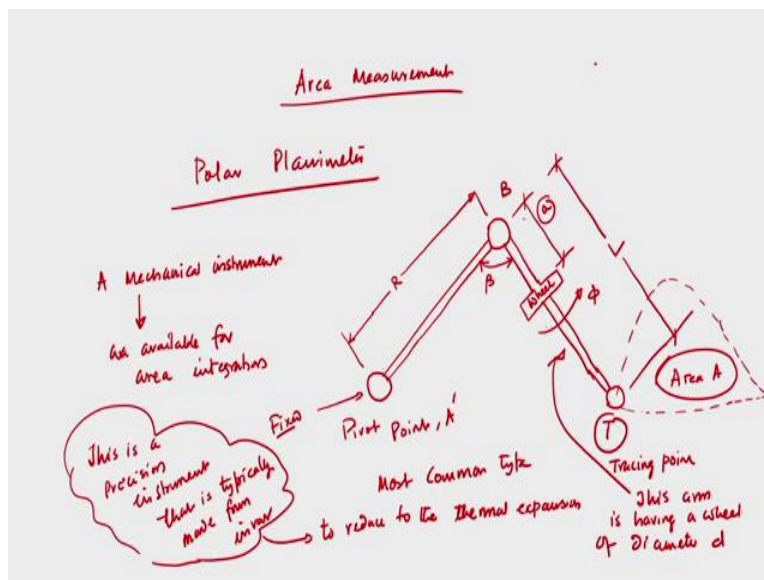 Area Measurement
Polar Planimeter
A Mechanical instrument
are available for
area integrations
This is a
precision
instrument
that is typically
made from
invar
to reduce to the thermal expansion
Most common type
Fixed
Pivot Point, A'
R
B
β
a
L
Wheel
φ
T
Area A
Tracing point
This arm
is having a wheel
of diameter d